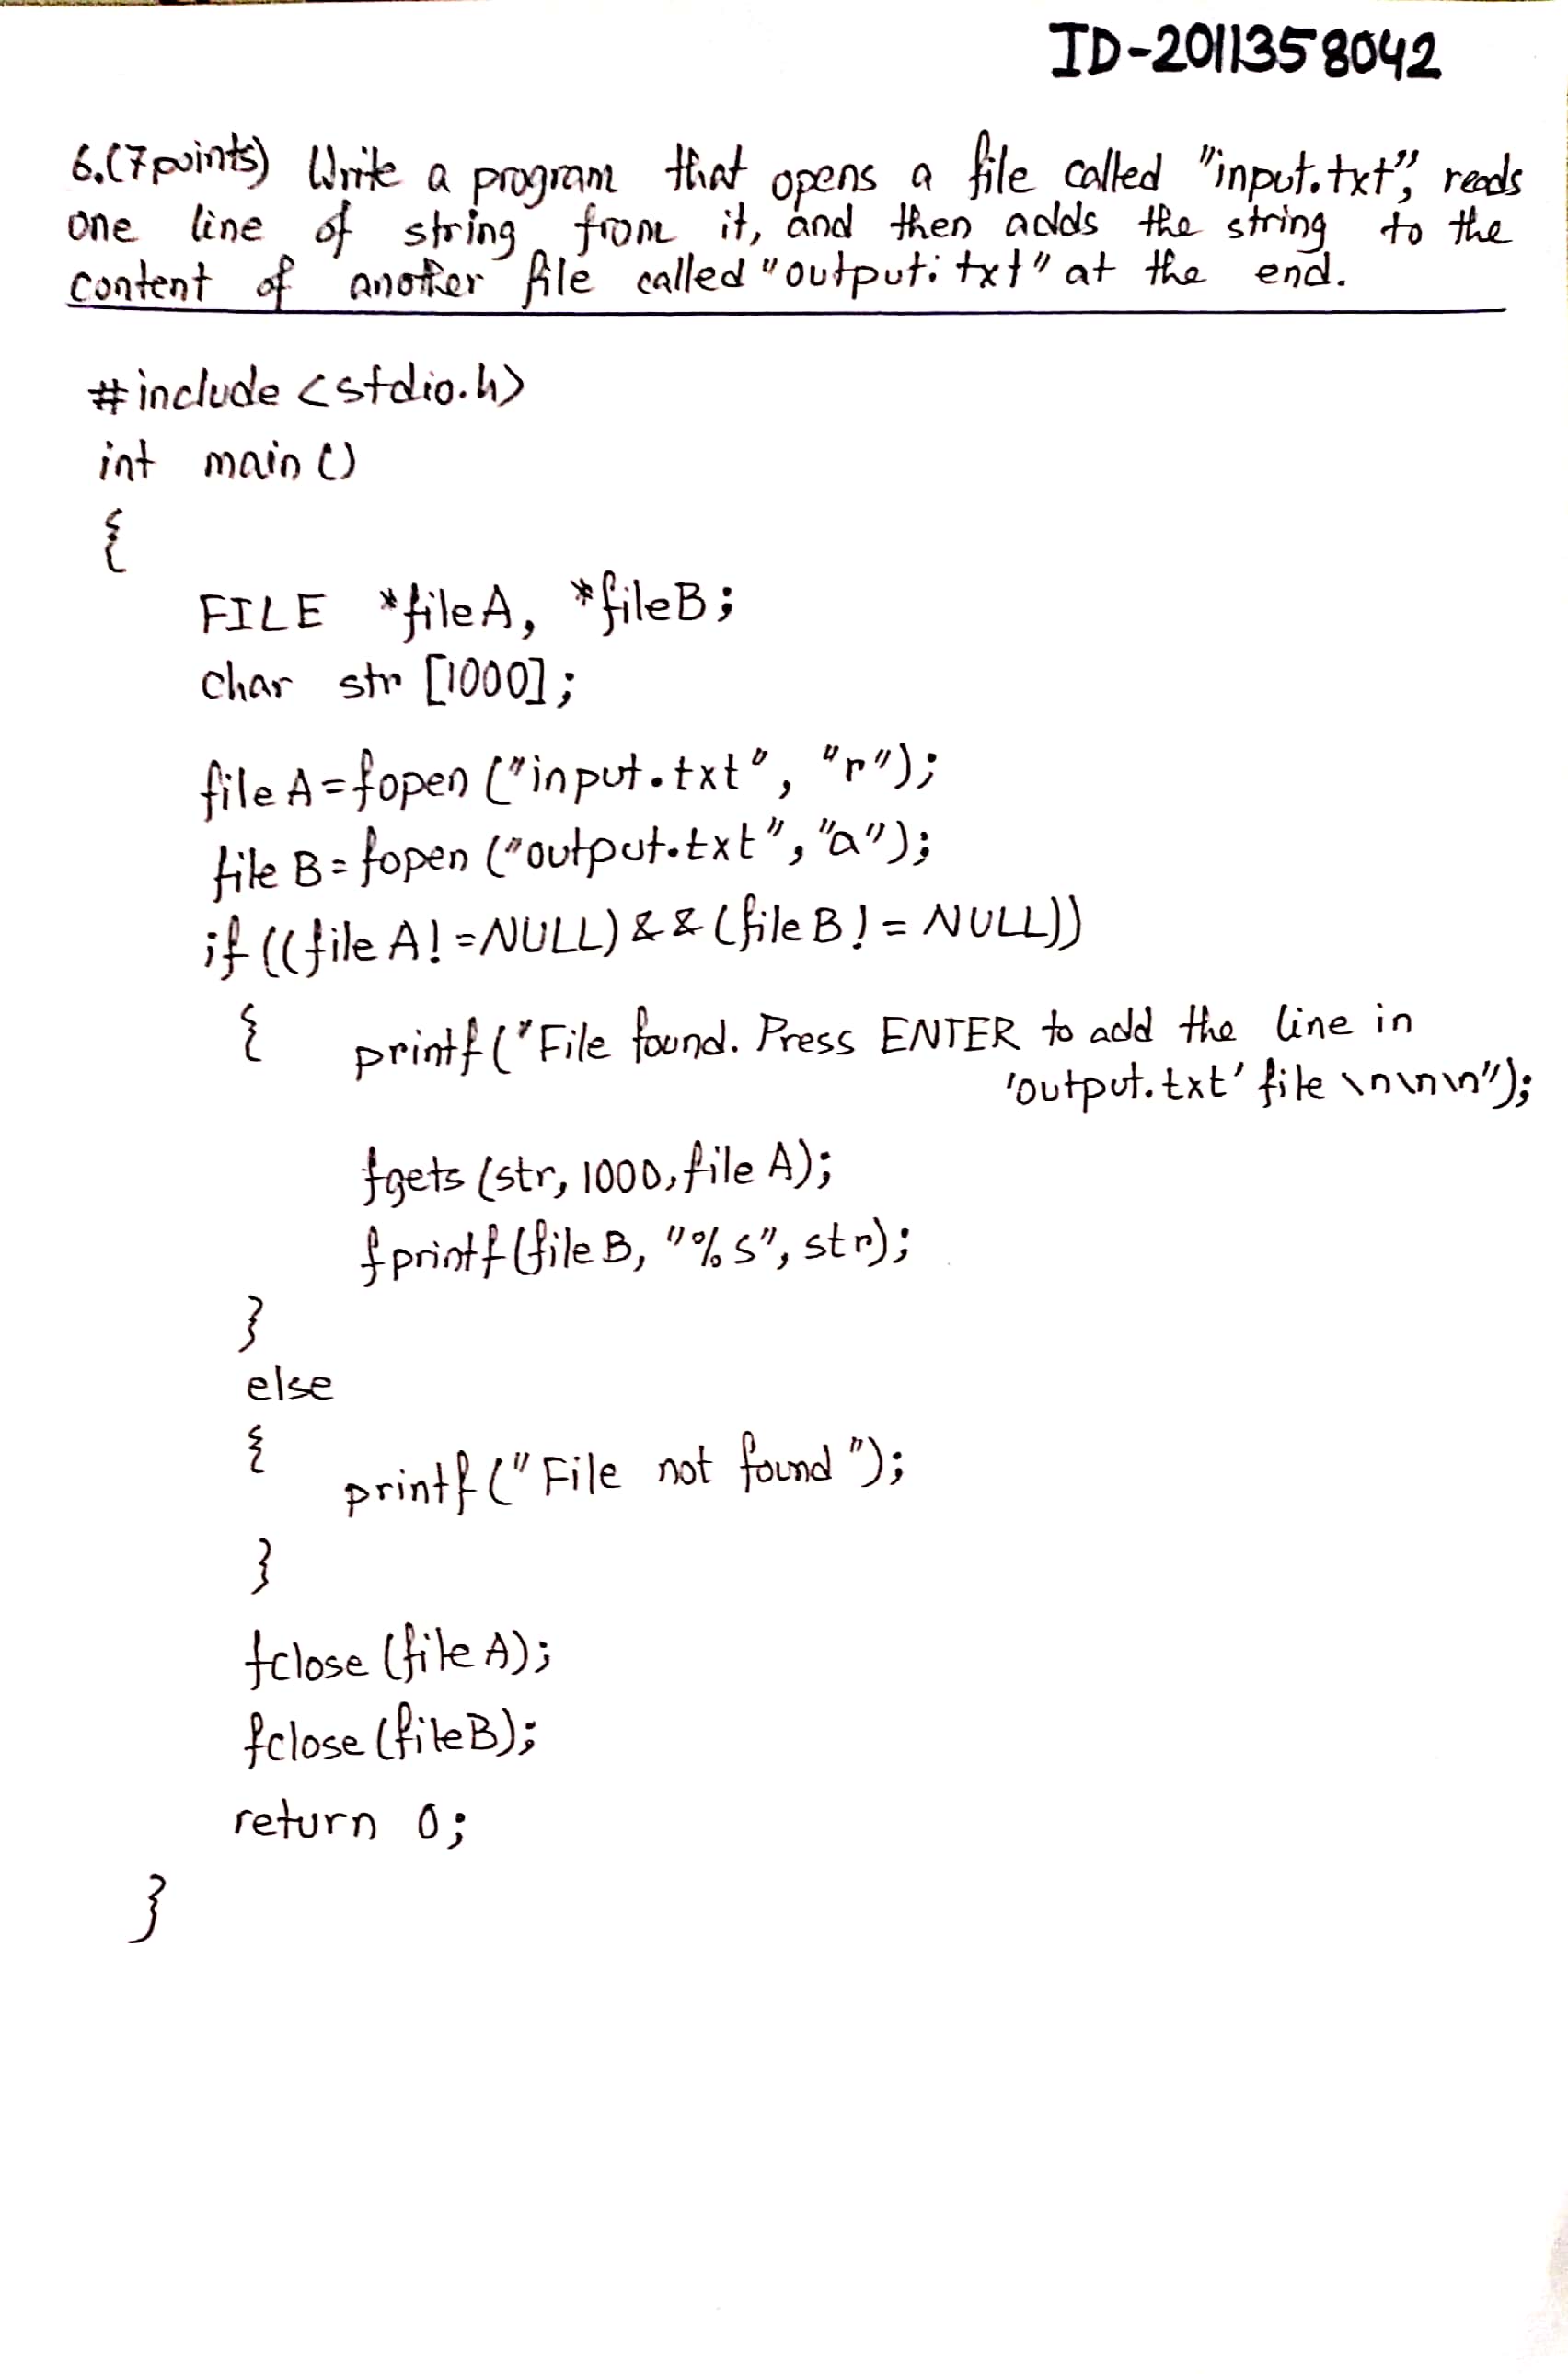 ID-2011358042
6.(7points) Write a program that opens a file called "input.txt", reads
one line of string from it, and then adds the string to the
content of another file called "output.txt" at the end.
#include <stdio.h>
int main()
{
FILE *fileA, *fileB;
char str [1000];
fileA=fopen ("input.txt", "r");
fileB=fopen ("output.txt","a");
if ((fileA!=NULL)&&(fileB!=NULL))
{ printf("File found. Press ENTER to add the line in
'output.txt' file \n\n\n");
fgets (str, 1000, fileA);
fprintf(fileB, "%s", str);
}
else
{ printf("File not found");
}
fclose (fileA);
fclose (fileB);
return 0;
}